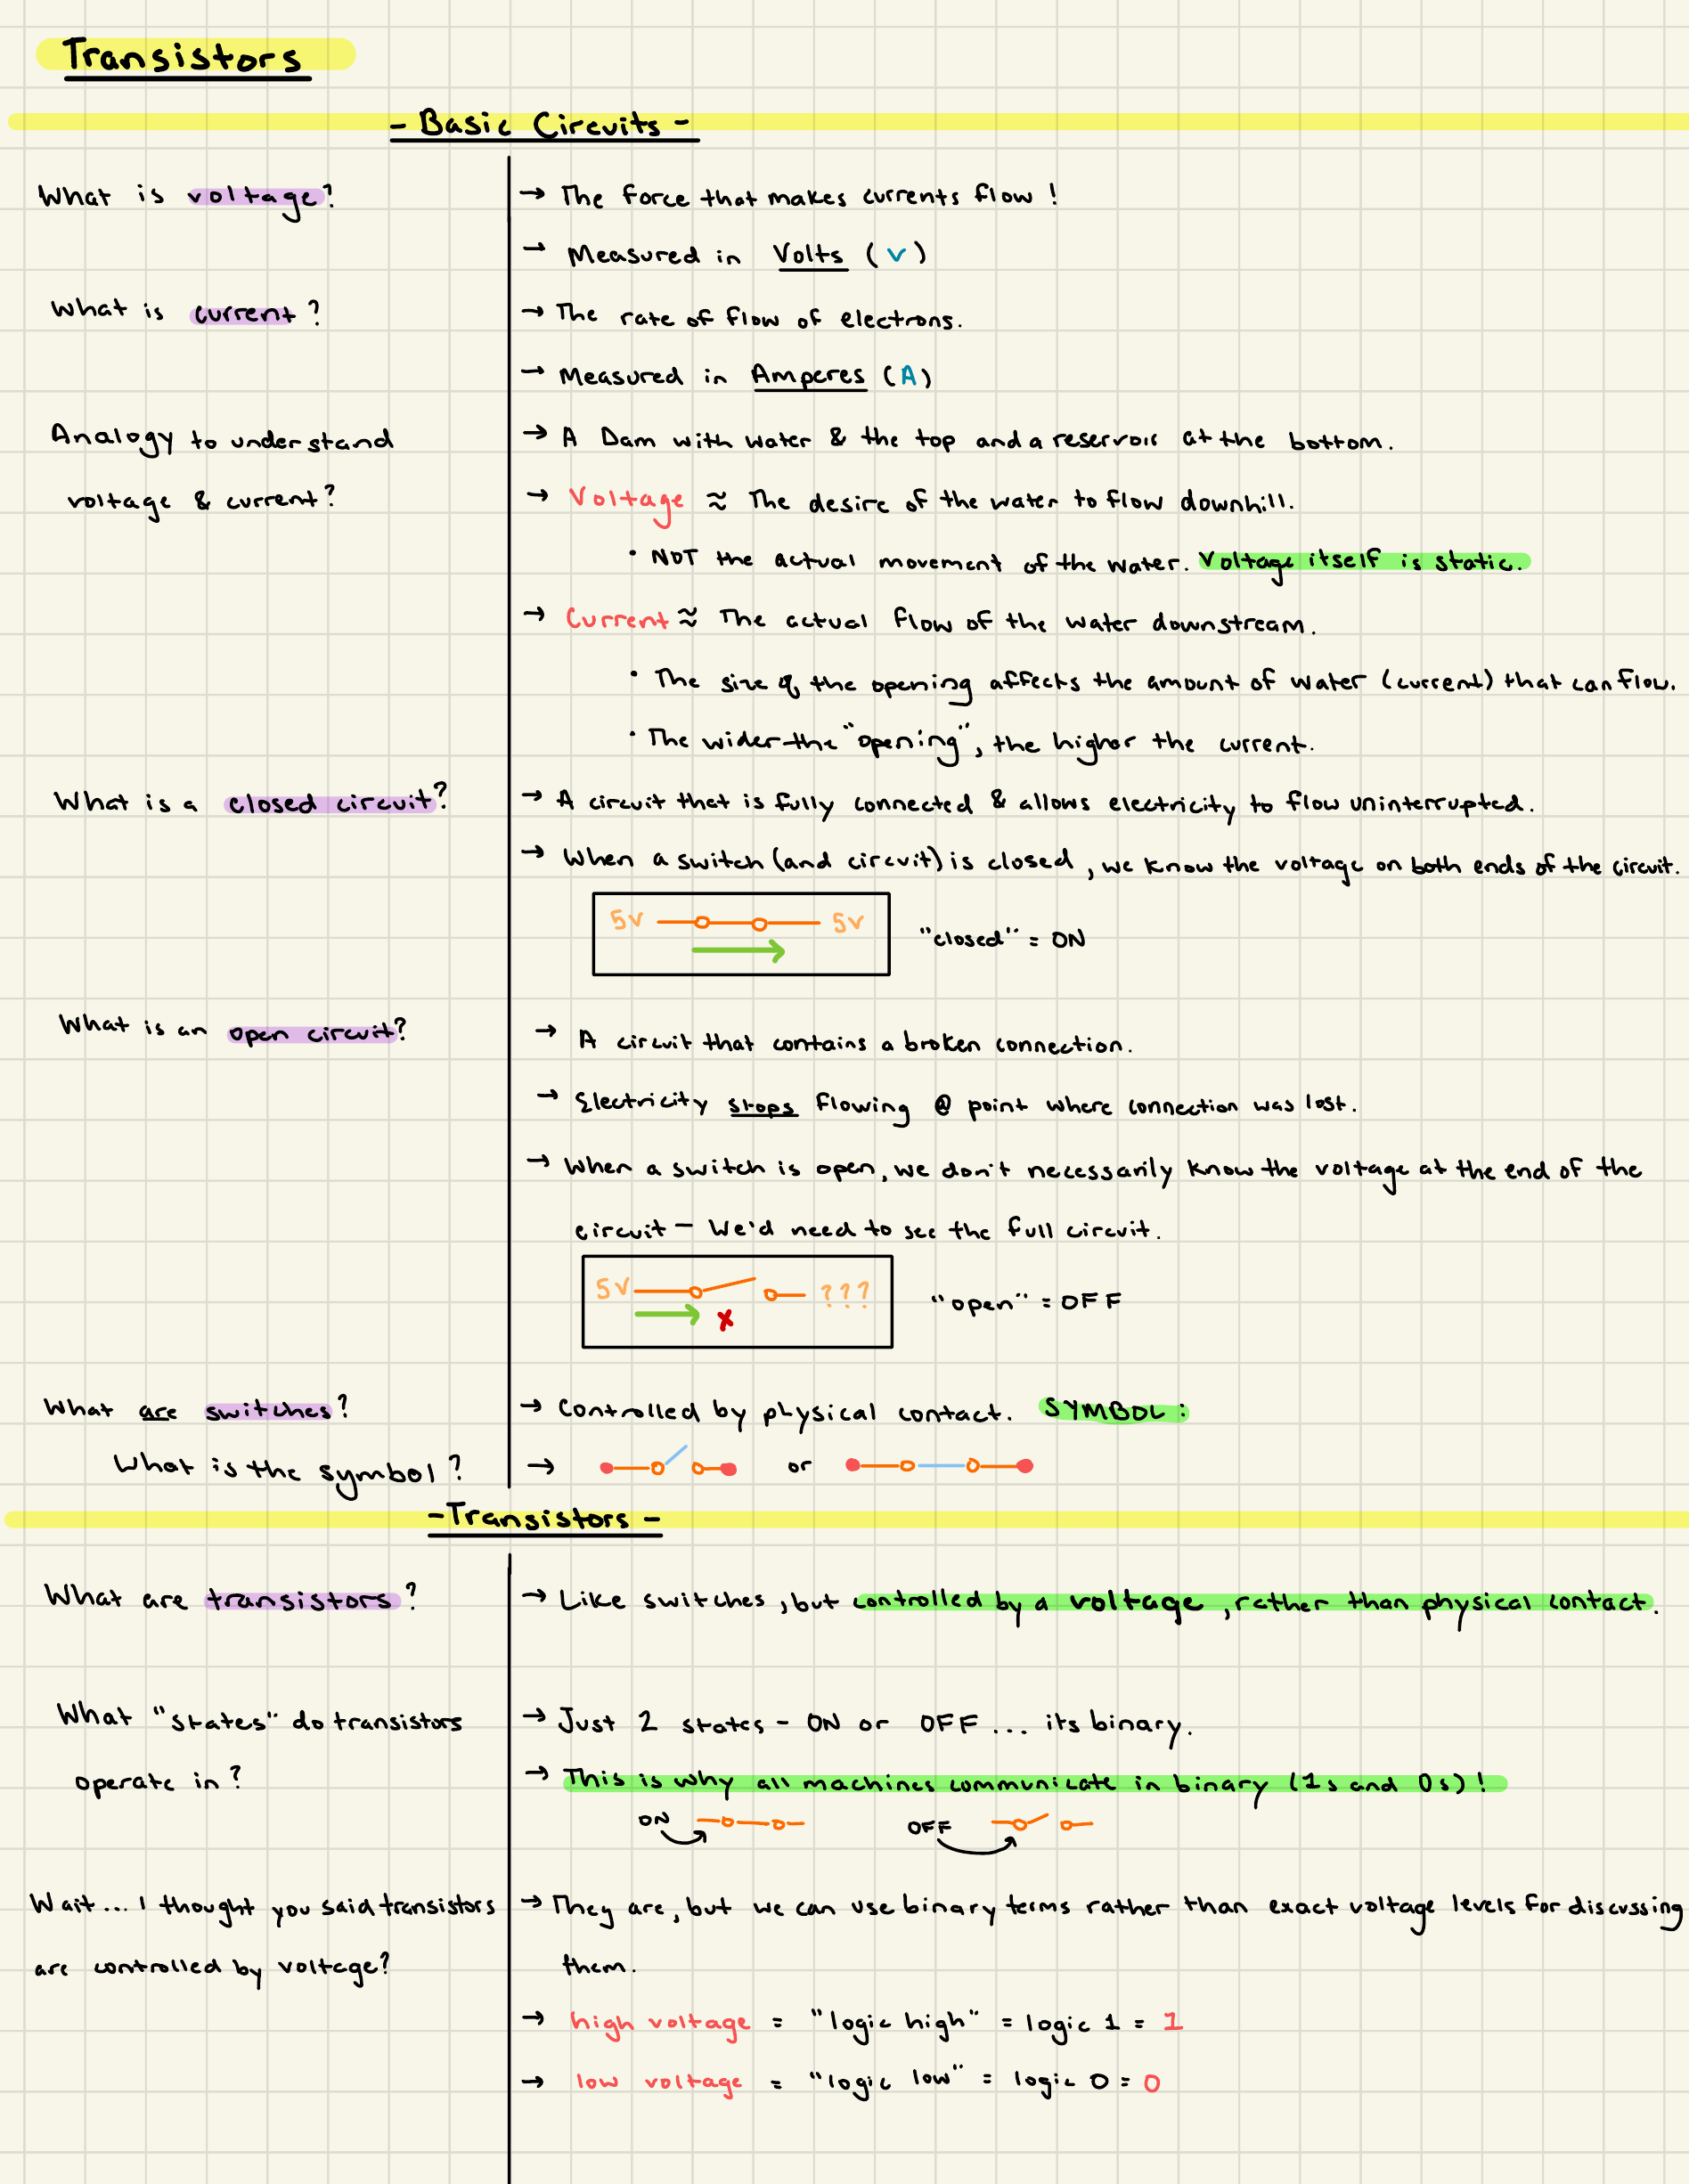 Transistors
- Basic Circuits -
What is voltage?
→ The force that makes currents flow!
→ Measured in Volts (V)
What is current?
→ The rate of flow of electrons.
→ Measured in Amperes (A)
Analogy to understand
voltage & current?
→ A Dam with water & the top and a reservoir at the bottom.
→ Voltage ≈ The desire of the water to flow downhill.
• NOT the actual movement of the water. Voltage itself is static.
→ Current ≈ The actual flow of the water downstream.
• The size of the opening affects the amount of water (current) that can flow.
• The wider the "opening", the higher the current.
What is a closed circuit?
→ A circuit that is fully connected & allows electricity to flow uninterrupted.
→ When a switch (and circuit) is closed, we know the voltage on both ends of the circuit.
5V 5V
"closed" = ON
What is an open circuit?
→ A circuit that contains a broken connection.
→ Electricity stops flowing @ point where connection was lost.
→ When a switch is open, we don't necessarily know the voltage at the end of the
circuit - We'd need to see the full circuit.
5V ??? X
"open" = OFF
What are switches?
→ Controlled by physical contact. SYMBOL:
What is the symbol?
→ or
- Transistors -
What are transistors?
→ Like switches, but controlled by a voltage, rather than physical contact.
What "states" do transistors
operate in?
→ Just 2 states - ON or OFF... its binary.
→ This is why all machines communicate in binary (1s and 0s)!
ON OFF
Wait... I thought you said transistors
are controlled by voltage?
→ They are, but we can use binary terms rather than exact voltage levels for discussing
them.
→ high voltage = "logic high" = logic 1 = 1
→ low voltage = "logic low" = logic 0 = 0